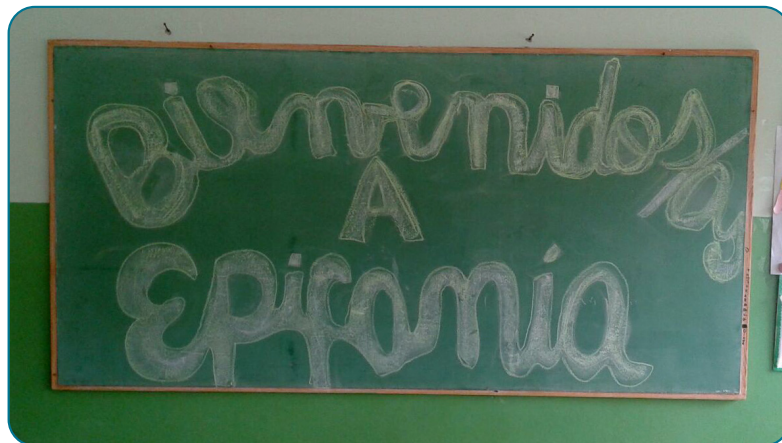 Bienvenidos/as
A
Epifanía